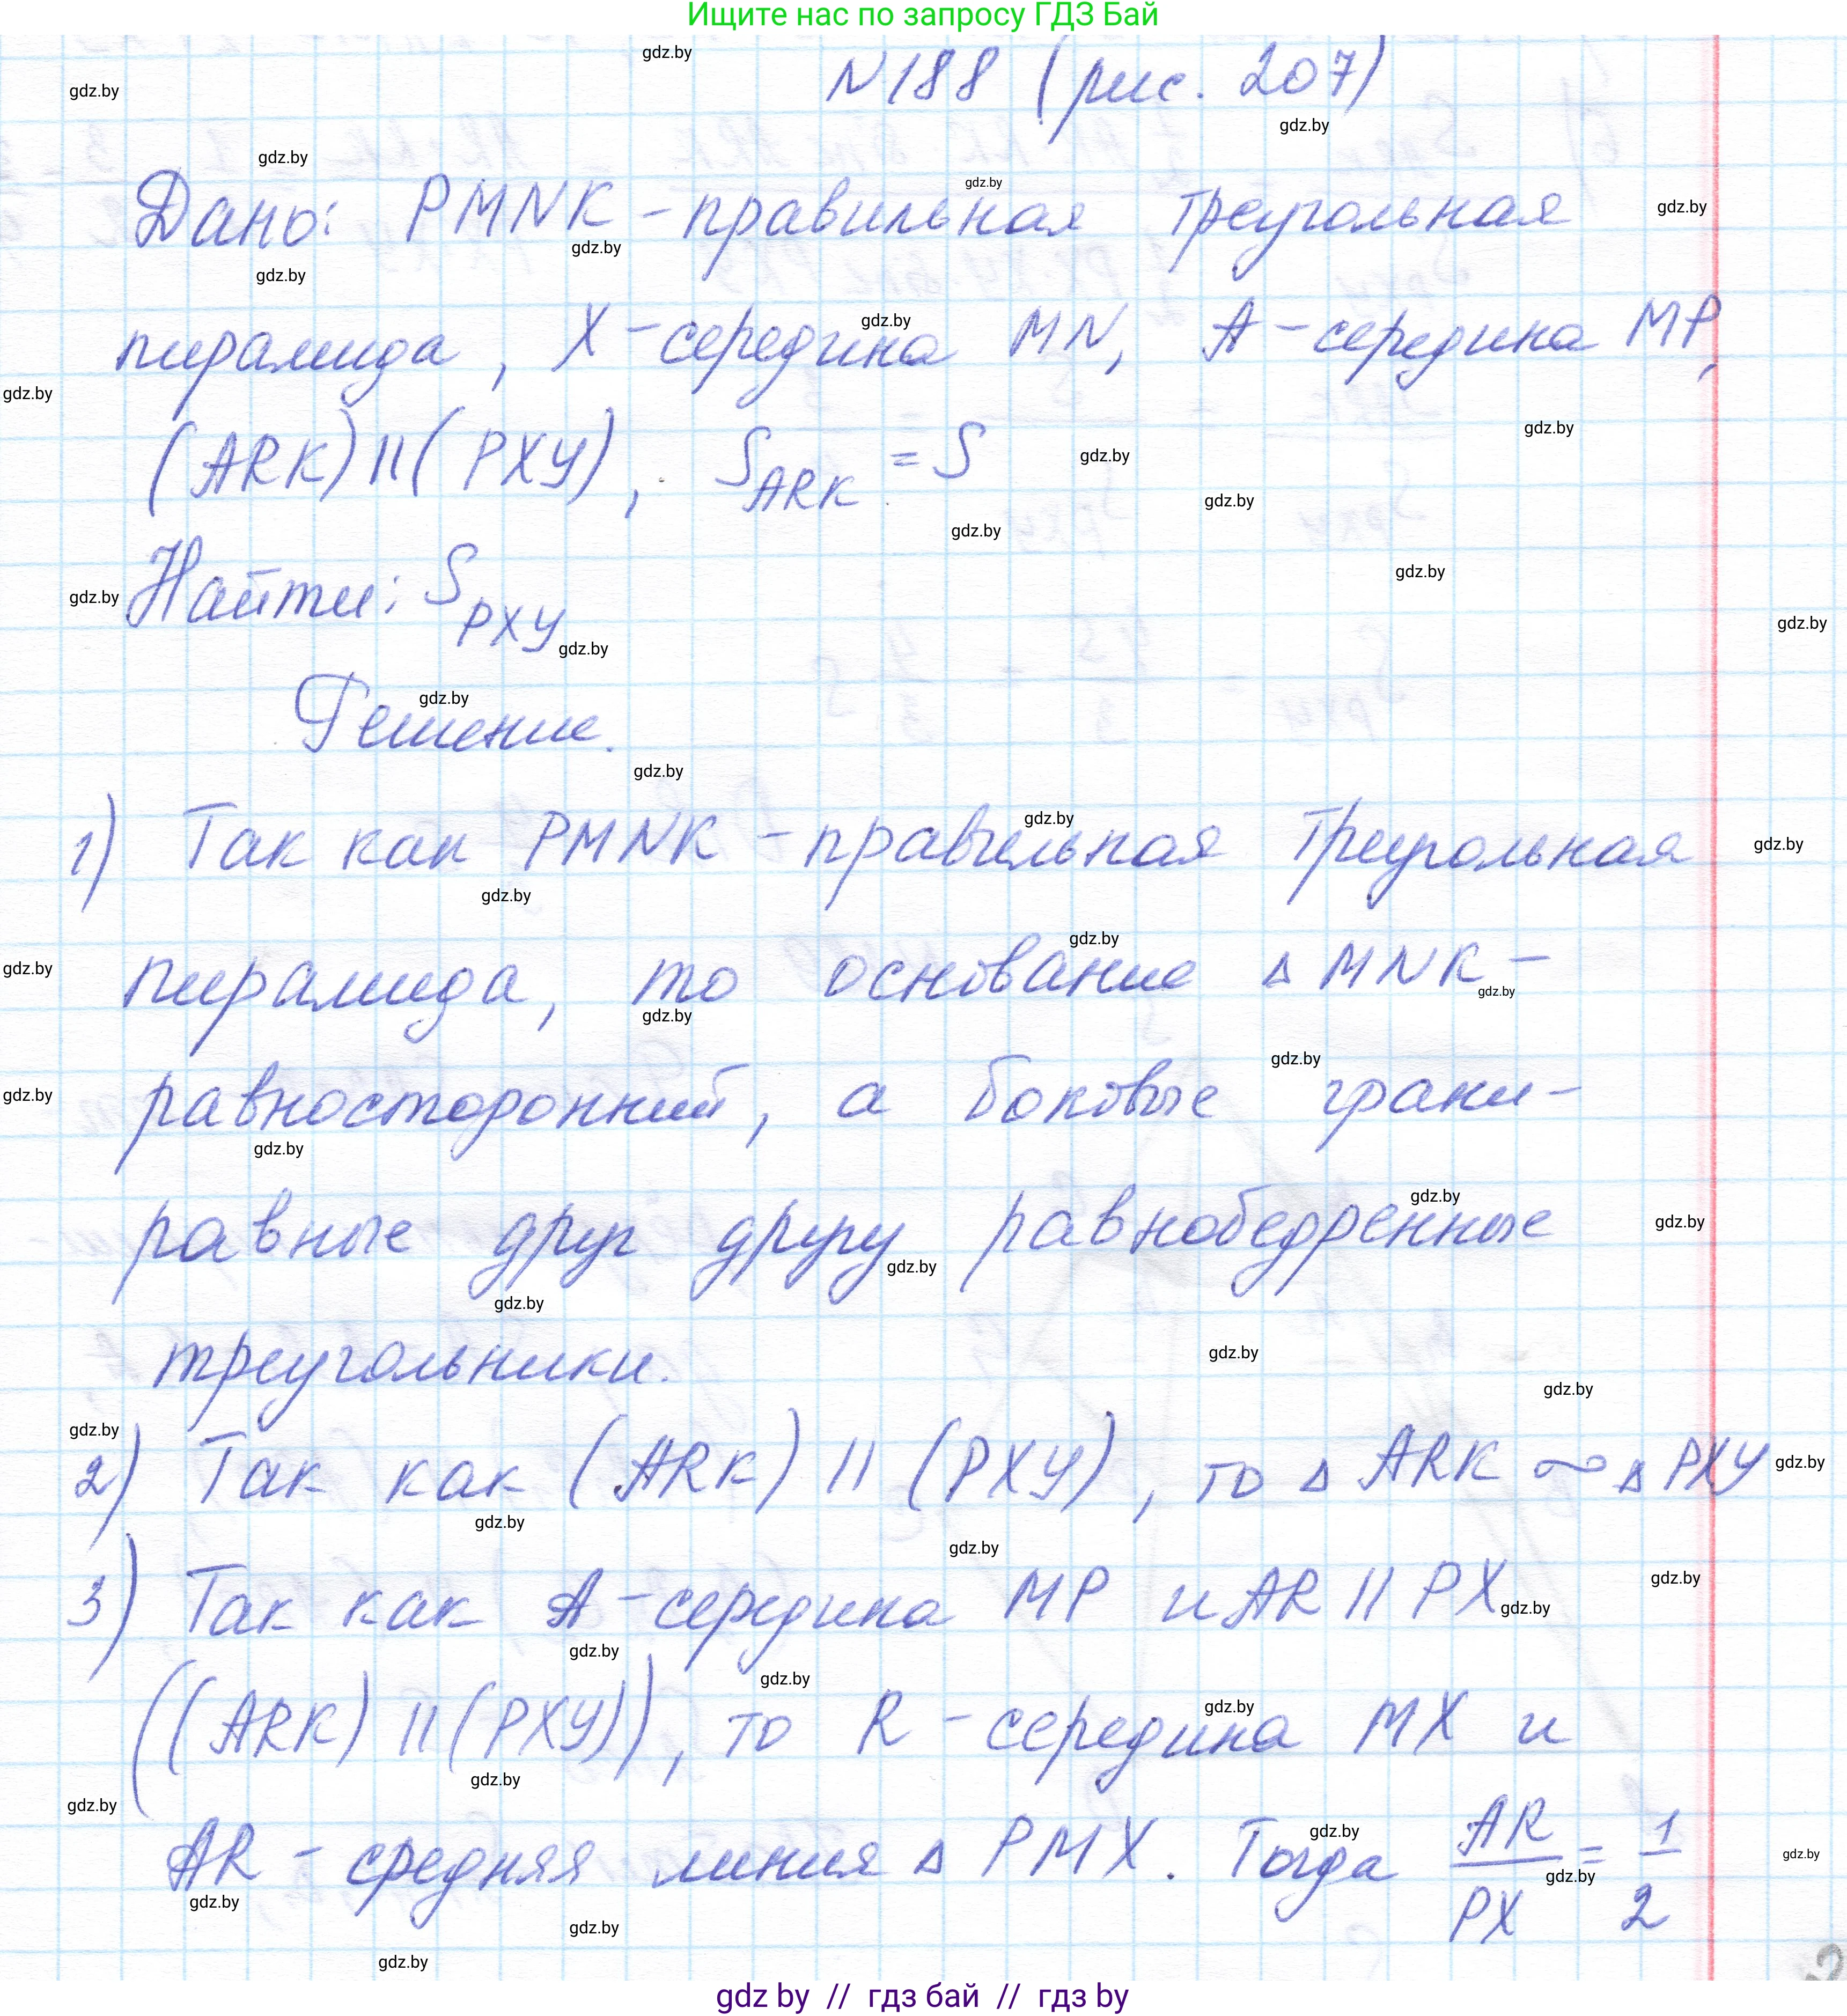 Ищите нас по запросу ГДЗ Бай
N188 (рис. 207)
Дано: PMNK - правильная треугольная
пирамида, X - середина MN, A - середина MP,
(ARK) || (PXY), S ARK = S
Найти: S PXY
Решение.
1) Так как PMNK - правильная треугольная
пирамида, то основание △ MNK -
равносторонний, а боковые грани -
равные друг другу равнобедренные
треугольники.
2) Так как (ARK) || (PXY), то △ ARK ∾ △ PXY
3) Так как A - середина MP и AR || PX
((ARK) || (PXY)), то R - середина MX и
AR - средняя линия △ PMX. Тогда AR/PX = 1/2
gdz by // гдз бай // гдз by